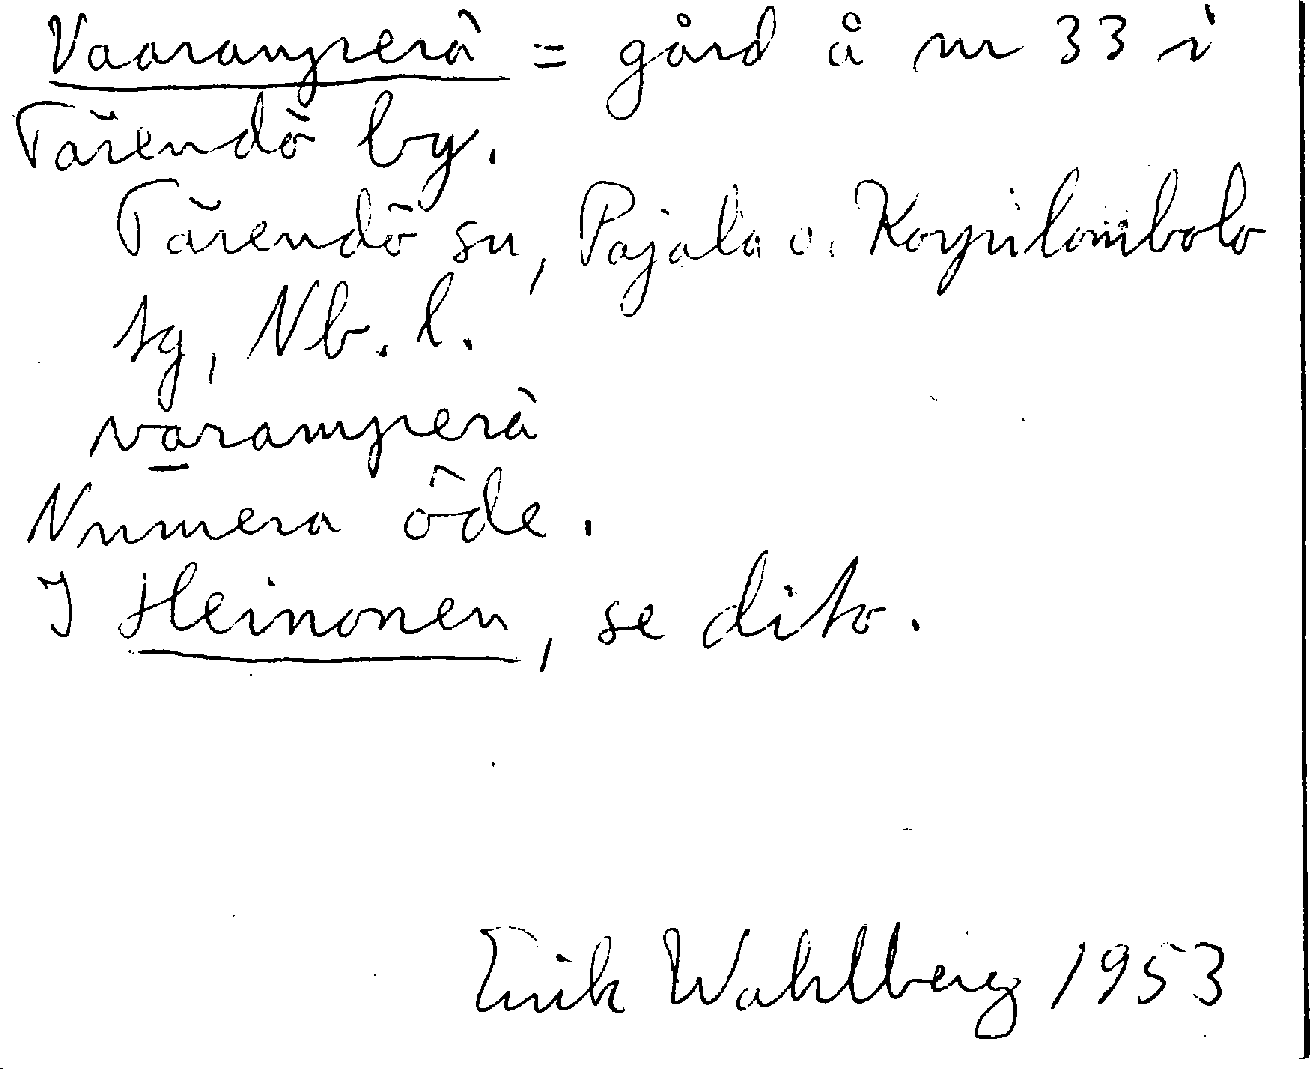 Vaaranperä = gård å nr 33 i
Tärendö by.
Tärendö sn, Pajala o. Korpilombolo
tg, Nb. l.
varamperä
Numera öde.
I Heinonen, se dito.
Erik Wahlberg 1953